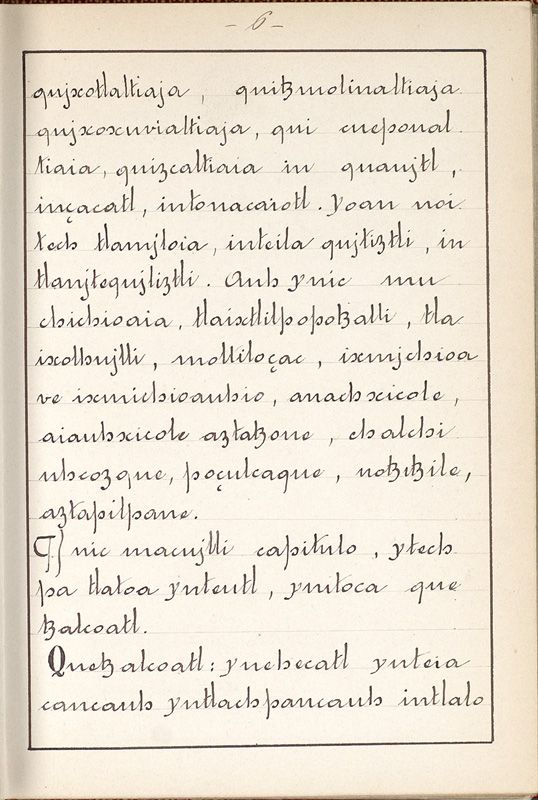 - 6 -
qujxotlaltiaja, quitzmolinaltiaja
qujxoxuvialtiaja, qui cueponal
tiaia, quizcaltiaia in quaujtl,
inçacatl, intonacaiotl. Yoan noi
tech tlamjloia, inteila qujliztli, in
tlanjtequjliztli. Auh ynic mu
chichioaia, tlaixtlilpopotzalli, tla
ixolhujlli, moltiloçac, ixmjchioa
ve ixmichioauhio, anachxicole,
aiauhxicole aztatzone, chalchi
uhcozque, poçulcaque, notzitzile,
aztapilpane.
¶ Inic macujlli capitulo, ytech
pa tlatoa ynteutl, ynitoca que
tzalcoatl.
Quetzalcoatl: ynehecatl ynteia
cancauh yntlachpancauh intlalo